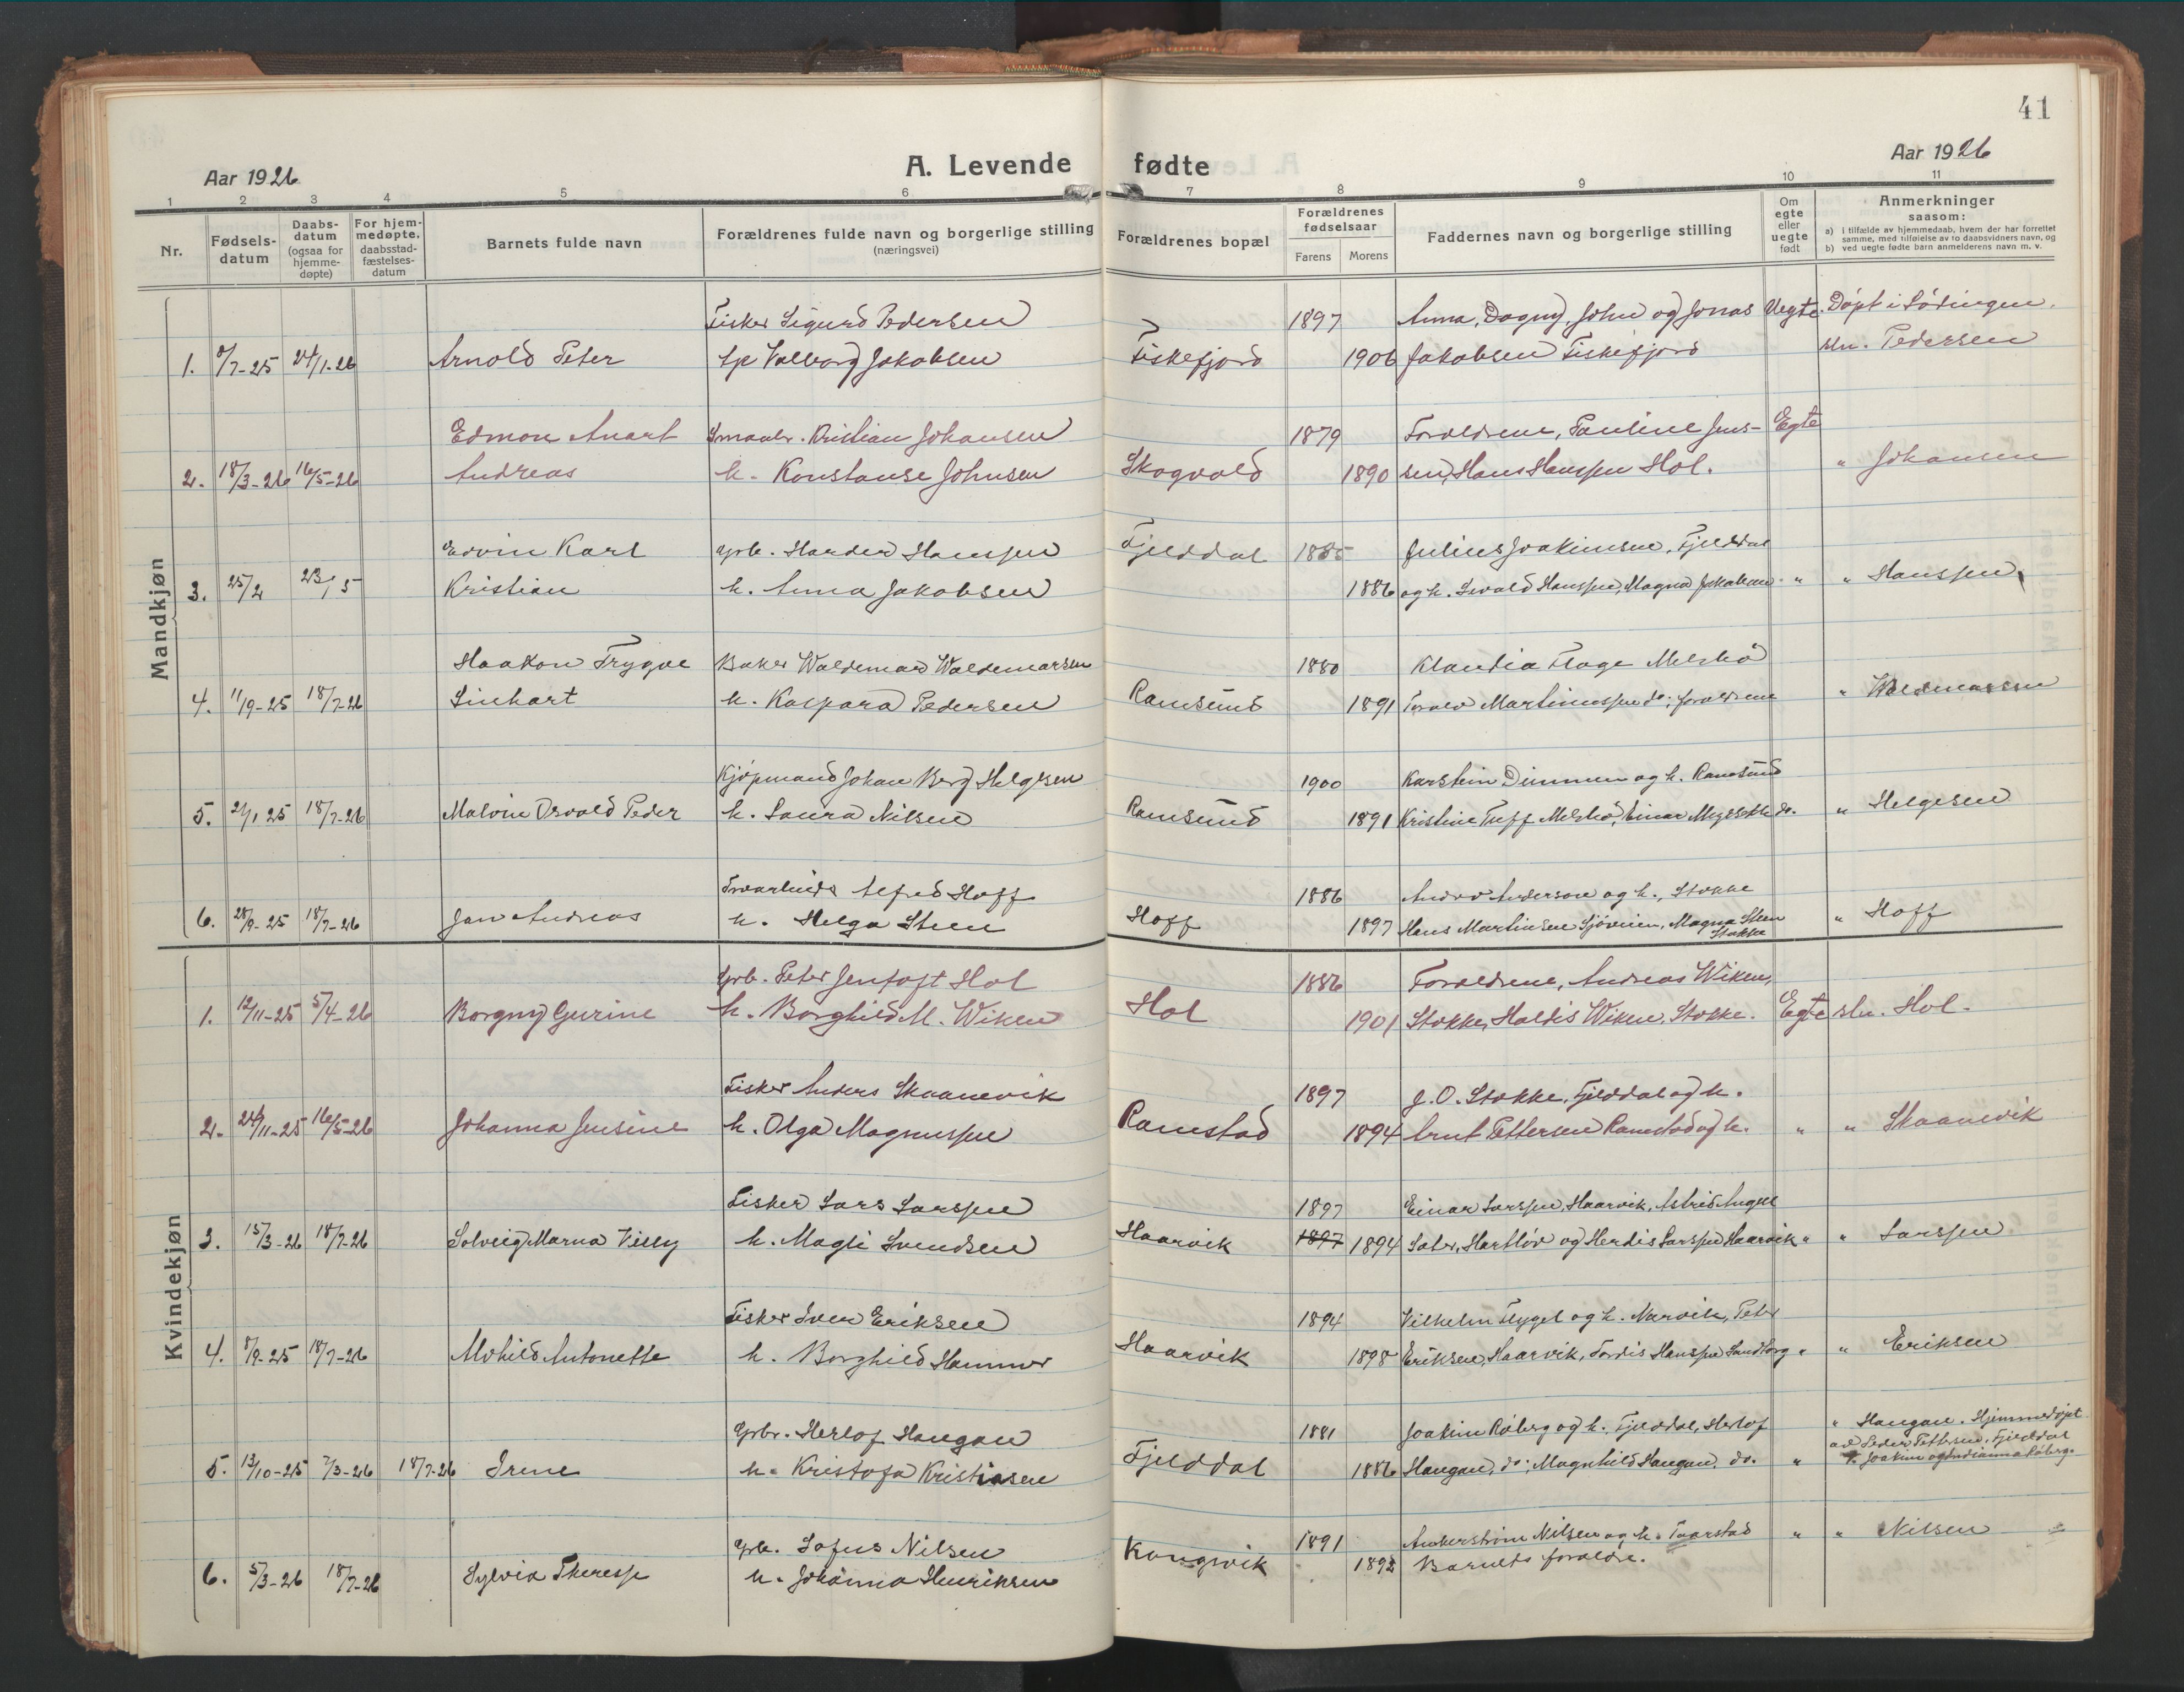 41
Aar 1926
A. Levende fødte
Aar 1926
1 2 3 4 5 6 7 8 9 10 11
Nr.
Fødsels-
datum
Daabs-
datum
(ogsaa for
hjemme-
døpte)
For hjem-
medøpte.
daabsstad-
fæstelses-
datum
Barnets fulde navn
Forældrenes fulde navn og borgerlige stilling
(næringsvei)
Forældrenes bopæl
Forældrenes
fødselsaar
Farens Morens
Faddernes navn og borgerlige stilling
Om
egte
eller
uegte
født
Anmerkninger
saasom:
a) i tilfælde av hjemmedaab, hvem der har forrettet
samme, med tilføielse av to daabsvidners navn, og
b) ved uegte fødte barn anmelderens navn m. v.
Mandkjøn
Fisker Sigurd Pedersen 1897 Anna, Dagny, John og Jonas Uegte. Døpt i Lødingen.
1. /7-25 24/1-26 Arnold Peter Valborg Jakobsen Fiskefjord 1906 Jakobsen Fiskefjord sln. Pedersen
Edmon Anart Smaabr. Kristian Johansen 1879 Foreldrene, Pauline Jens- Egte
2. 18/3-26 16/5-26 Andreas h. Konstanse Johnsen Skogvold 1890 sen, Hans Hanssen Hol. " Johansen
Edvin Karl Grb. Harder Hanssen Fjelddal 1885 Julius Joakimsen, Fjelddal
3. 25/2 23/5 Kristian h. Anna Jakobsen 1886 og h. Sevald Hanssen, Magna Jakobsen " " Hanssen
Haakon Trygve Baker Waldemar Waldemarsen 1880 Klaudia Flage Melshø
4. 11/9-25 18/7-26 Linhart h. Kaspara Pedersen Ramsund 1891 Torald Martinussen do; foreldrene " Waldemarsen
Kjøpmand Johan Berg Helgesen 1900 Karstein Dimmen og h. Ramsund
5. 21/1 25 18/7-26 Malvin Osvald Peder h. Laura Nilsen Ramsund 1891 Kristine Tuff Melshø, Einar do. " Helgesen
Alfred Hoff 1886 Andersen og h., Stokke
6. 28/9-25 18/7-26 Jan Andreas h. Helga Steen Hoff 1897 Hans Martinsen Sjøveien, Magna Steen " Hoff
Stokke
Kvindekjøn
Grb. Peter Jentoft Hol 1886 Foreldrene, Andreas Wiken,
1. 12/11-25 5/4-26 Borgny Gurine h. Borghild M. Wiken Hol 1901 Stokke, Haldis Wiken, Stokke. Egte sln. Hol.
Fisker Anders Skaanevik 1897 J. O. Stokke, Fjelddal og h.
2. 24/11-25 16/5-26 Johanna Jensine h. Olga Magnussen Ramstad 1894 Arnt Pettersen Ramstad og h. " " Skaanevik
Fisker Lars Larssen 1897 Einar Larssen, Haarvik, Astrid August
3. 15/3-26 18/7-26 Solveig Marna Villy h. Magli Svendsen Haarvik 1897 1894 Sæter, Hartløv og Herdis Larssen Haarvik " " Larssen
Fisker Sven Eriksen 1894 Vilhelm Flygel og h. Narvik, Peter
4. 8/9-25 18/7-26 Mohild Antonette h. Borghild Hammer Haarvik 1898 Eriksen, Haarvik, Tordis Hanssen Sandtorg " " Eriksen
Grbr. Herlof Haugan 1881 Joakim Roberg og h. Fjelddal, Herlof " Haugan. Hjemmedøpt
5. 13/10-25 7/3-26 18/7-26 Irene h. Kristofa Kristiansen Fjelddal 1886 Haugan, do; Magnhild Haugan, do. " av Peder Pettersen, Fjelddal
Joakim og Indianna Roberg.
Grb. Sofus Nilsen 1891 Ankerstrøm Nilsen og h. Taarstad " " Nilsen
6. 5/3-26 18/7-26 Sylvia Theresse h. Johanna Henriksen Kongsvik 1892 Barnets foreldre.